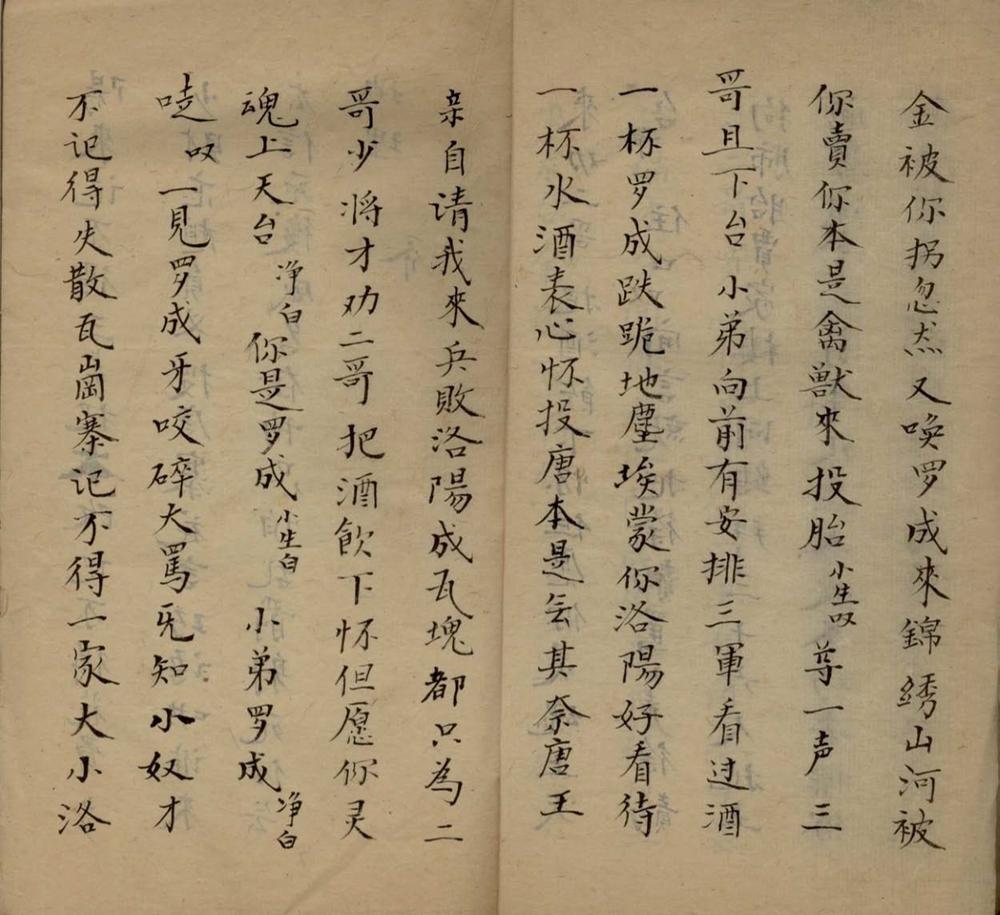 金被你拐忽然又唤罗成來錦綉山河被
你賣你本是禽獸來 投胎 小生叹 尊一声三
哥且下台 小弟向前有安排三軍看过酒
一杯罗成跌跪地塵埃蒙你洛陽好看待
一杯水酒表心怀投唐本是无其奈唐王
亲自请我來兵敗洛陽成瓦塊都只為二
哥少将才劝二哥把酒飲下怀但愿你灵
魂上天台 净白 你是罗成 小生白 小弟罗成 净白
唗 叹 一見罗成牙咬碎大罵无知小奴才
不记得失散瓦崗寨记不得一家大小洛